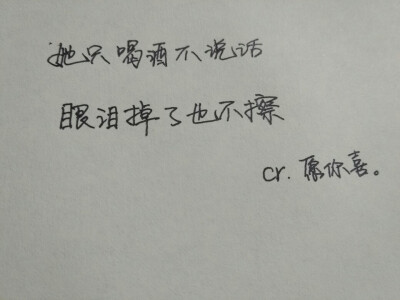 她只喝酒不说话
眼泪掉了也不擦
cr. 愿你喜。